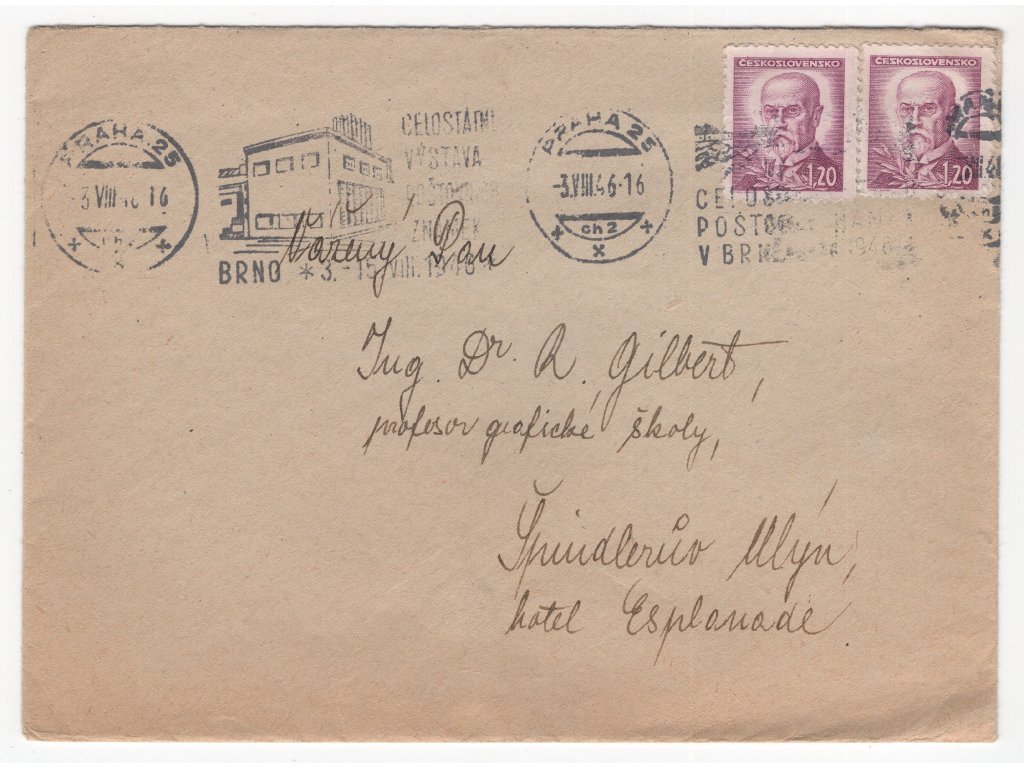 ČESKOSLOVENSKO ČESKOSLOVENSKO
1,20 1,20
PRAHA 25
3.VIII.46-16
ch 2
CELOSTÁTNÍ
VÝSTAVA
POŠTOVNÍCH
ZNÁMEK
BRNO * 3.-15.VIII.1946
PRAHA 25
-3.VIII.46-16
ch 2
V BRNĚ 1946
Vážený Pan
Ing. Dr. R. Gilbert,
profesor grafické školy,
Špindlerův Mlýn,
hotel Esplanade